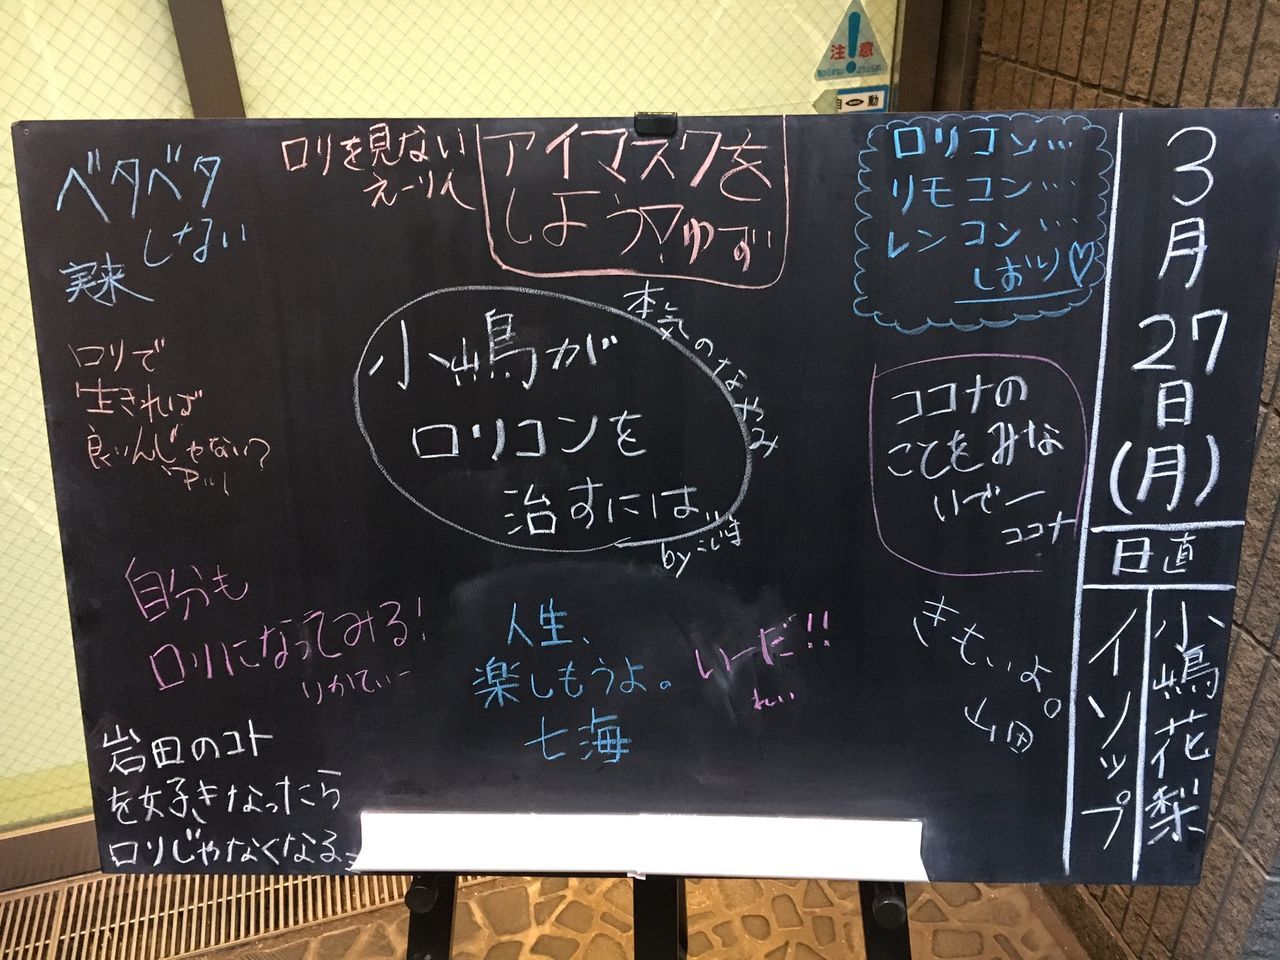 注意
自動
3月27日(月)
日直
小嶋花梨
イソップ
ロリコン…
リモコン…
レンコン…
しおり♡
アイマスクを
しよう♡ゆず
ロリを見ない
えーりん
ベタベタ
しない
実来
小嶋が
ロリコンを
治すには…
本気のなやみ
byこじま
ココナの
ことをみな
いでー
ココナ
ロリで
生きれば
良いんじゃない?
自分も
ロリになってみる!
りかてぃー
人生、
楽しもうよ。
七海
いーだ!!
れい
きもいよ。
山田
岩田のコト
を好きなったら
ロリじゃなくなる